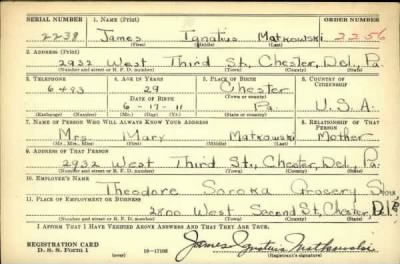 SERIAL NUMBER 1. NAME (Print) ORDER NUMBER
2238 James Ignatius Matkowski 2256
(First) (Middle) (Last)
2. ADDRESS (Print)
2932 West Third St., Chester, Del., Pa.
(Number and street or R. F. D. number) (Town) (County) (State)
3. TELEPHONE 4. AGE IN YEARS 5. PLACE OF BIRTH 6. COUNTRY OF CITIZENSHIP
6493 29 Chester
DATE OF BIRTH (Town or county)
6-17-11 Pa. U.S.A.
(Exchange) (Number) (Mo.) (Day) (Yr.) (State or country)
7. NAME OF PERSON WHO WILL ALWAYS KNOW YOUR ADDRESS 8. RELATIONSHIP OF THAT PERSON
Mrs. Mary Matkowski Mother
(Mr., Mrs., Miss) (First) (Middle) (Last)
9. ADDRESS OF THAT PERSON
2932 West Third St., Chester, Del., Pa.
(Number and street or R. F. D. number) (Town) (County) (State)
10. EMPLOYER'S NAME
Theodore Soroka Grocery Store
11. PLACE OF EMPLOYMENT OR BUSINESS
2800 West Second St, Chester Del.
(Number and street or R. F. D. number) (Town) (County) (State)
I AFFIRM THAT I HAVE VERIFIED ABOVE ANSWERS AND THAT THEY ARE TRUE.
REGISTRATION CARD
D. S. S. Form 1 (over) 16-17105 James Ignatius Matkowski
(Registrant's signature)